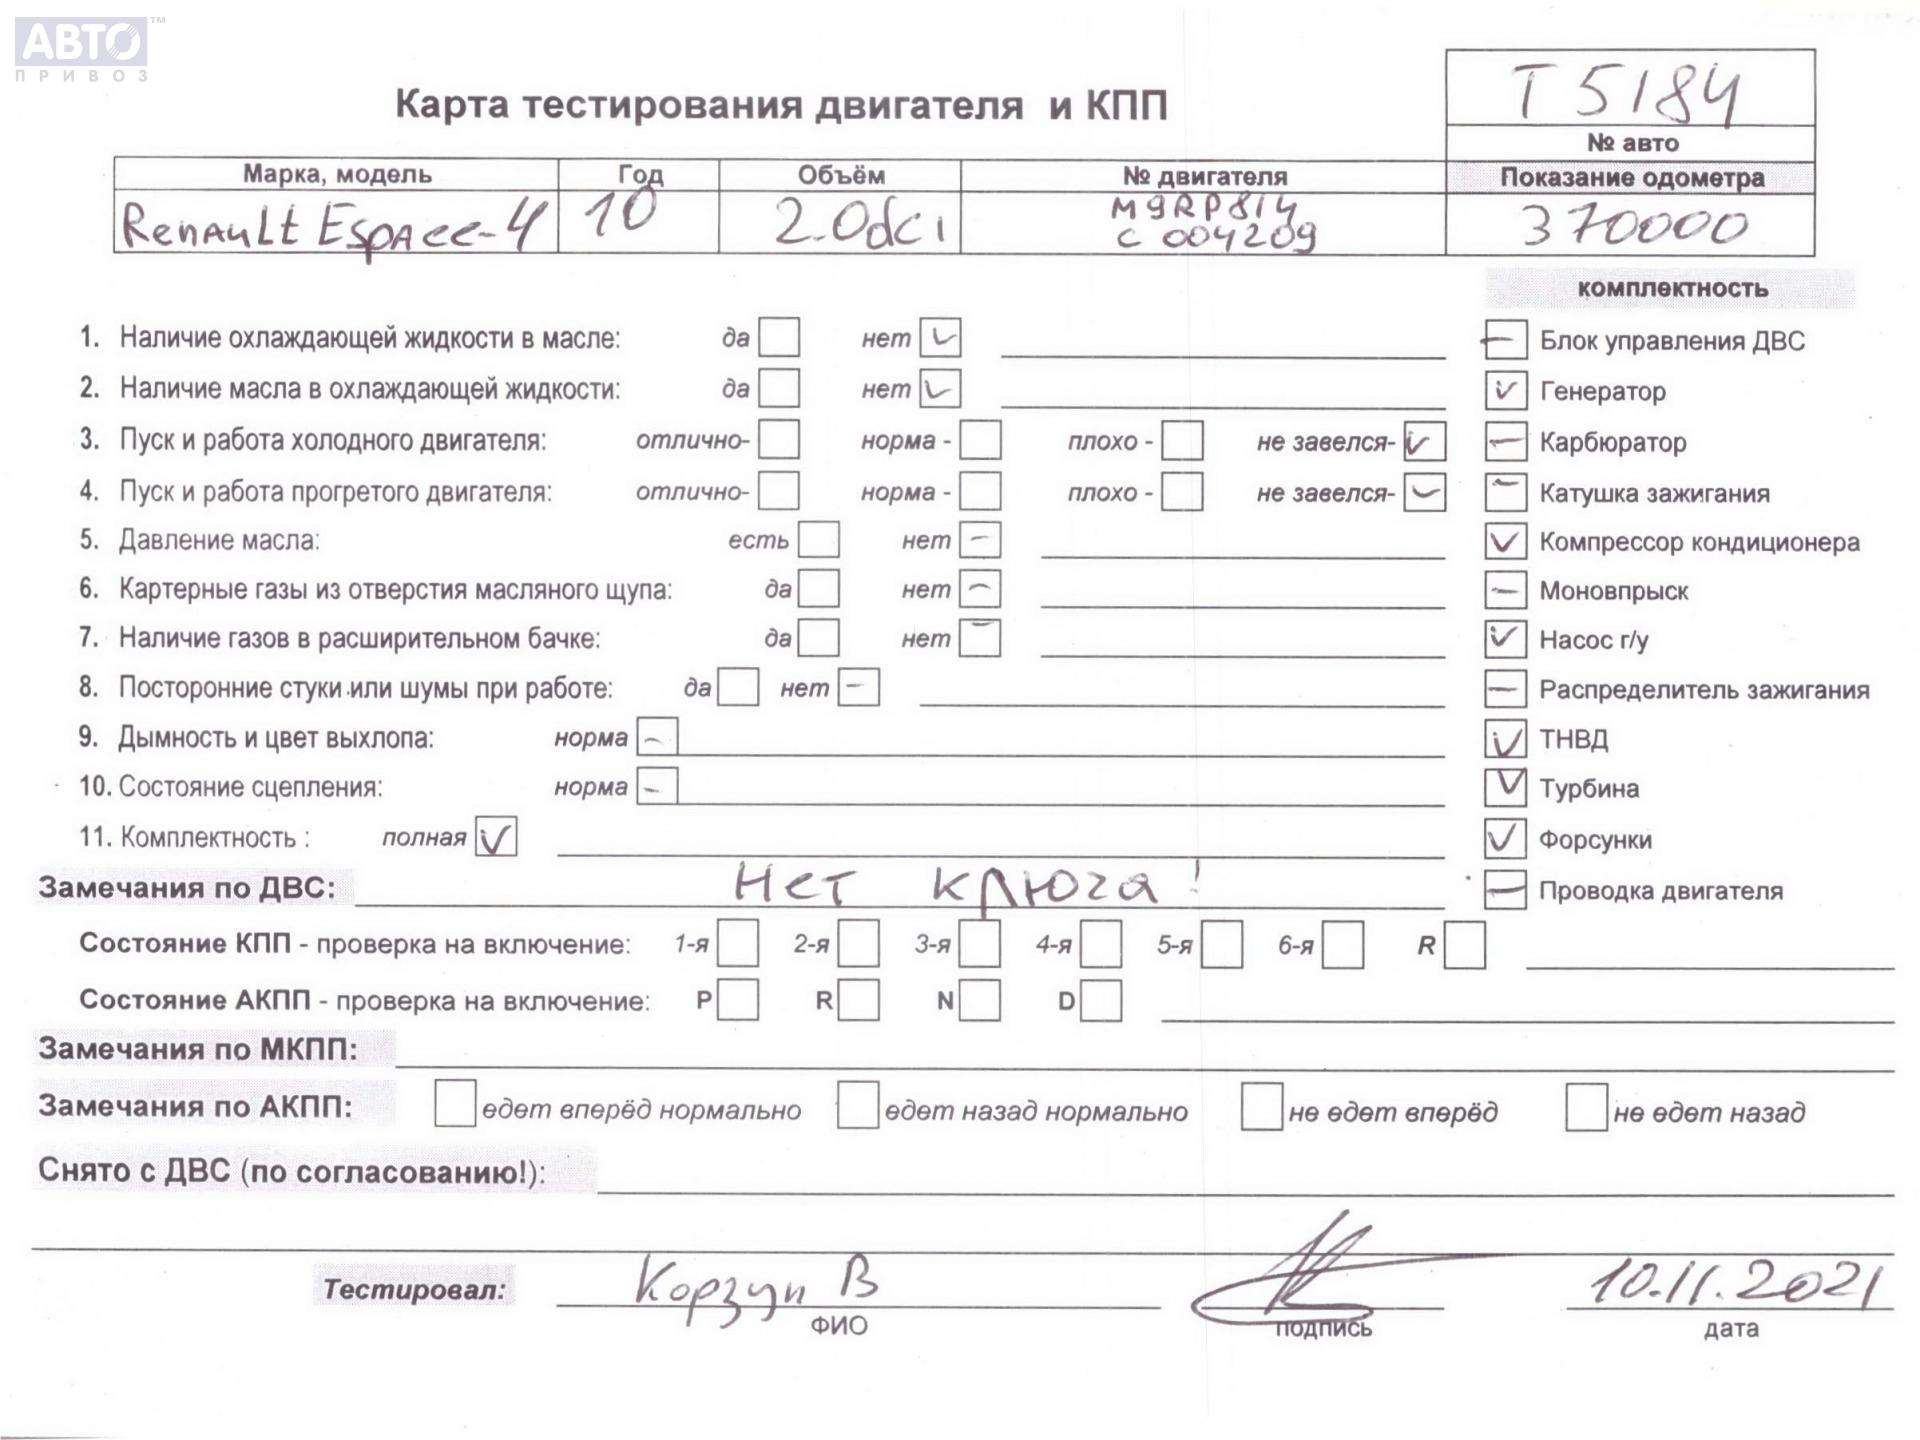 АВТО™
ПРИВОЗ
Карта тестирования двигателя и КПП
Т 5184
№ авто
Марка, модель Год Объём № двигателя Показание одометра
Renault Espace-4 10 2.0dci M9RP814 C004209 370000
комплектность
1. Наличие охлаждающей жидкости в масле: да нет
2. Наличие масла в охлаждающей жидкости: да нет
3. Пуск и работа холодного двигателя: отлично- норма - плохо - не завелся-
4. Пуск и работа прогретого двигателя: отлично- норма - плохо - не завелся-
5. Давление масла: есть нет
6. Картерные газы из отверстия масляного щупа: да нет
7. Наличие газов в расширительном бачке: да нет
8. Посторонние стуки или шумы при работе: да нет
9. Дымность и цвет выхлопа: норма
10. Состояние сцепления: норма
11. Комплектность : полная
Блок управления ДВС
Генератор
Карбюратор
Катушка зажигания
Компрессор кондиционера
Моновпрыск
Насос г/у
Распределитель зажигания
ТНВД
Турбина
Форсунки
Проводка двигателя
Замечания по ДВС: Нет ключа!
Состояние КПП - проверка на включение: 1-я 2-я 3-я 4-я 5-я 6-я R
Состояние АКПП - проверка на включение: P R N D
Замечания по МКПП:
Замечания по АКПП: едет вперёд нормально едет назад нормально не едет вперёд не едет назад
Снято с ДВС (по согласованию!):
Тестировал: Корзун В 10.11.2021
ФИО подпись дата